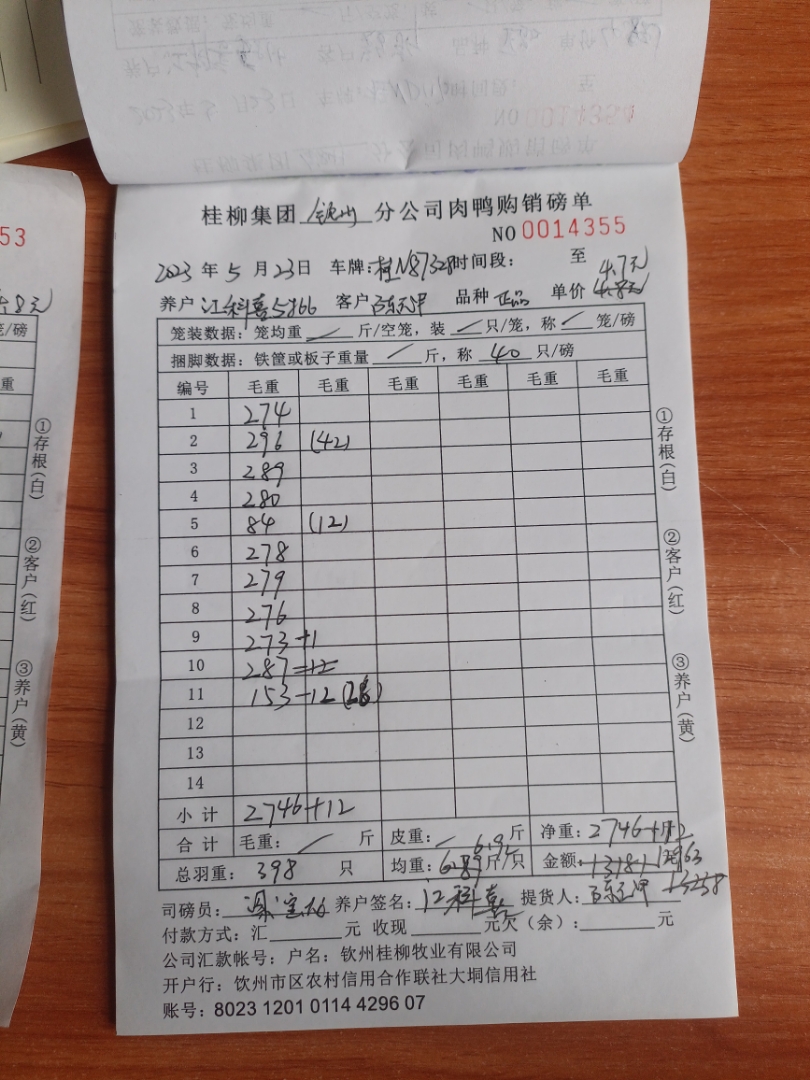 53
4.8元
笼/磅
重
①存根(白)
②客户(红)
③养户(黄)
桂柳集团 钦州 分公司肉鸭购销磅单
NO 0014355
2023 年 5 月 23日 车牌:桂N87328时间段: 至
4.7元
养户 江科喜5866 客户 品种 正品 单价 4.8元
笼装数据:笼均重 / 斤/空笼,装 / 只/笼,称 / 笼/磅
捆脚数据:铁筐或板子重量 / 斤,称 40 只/磅
编号 毛重 毛重 毛重 毛重 毛重 毛重
1 274
2 296 (42)
3 289
4 280
5 84 (12)
6 278
7 279
8 276
9 273+1
10 287=12
11 153-12
12
13
14
小计 2746+12
合计 毛重: / 斤 皮重: / 斤 净重: 2746+12
6.92
总羽重: 398 只 均重: 6.89斤/只 金额: 13181 12963
司磅员: 养户签名: 江科喜 提货人:
付款方式:汇 元 收现 元欠(余): 元
公司汇款帐号:户名:钦州桂柳牧业有限公司
开户行:钦州市区农村信用合作联社大垌信用社
账号:8023 1201 0114 4296 07
①存根(白)
②客户(红)
③养户(黄)